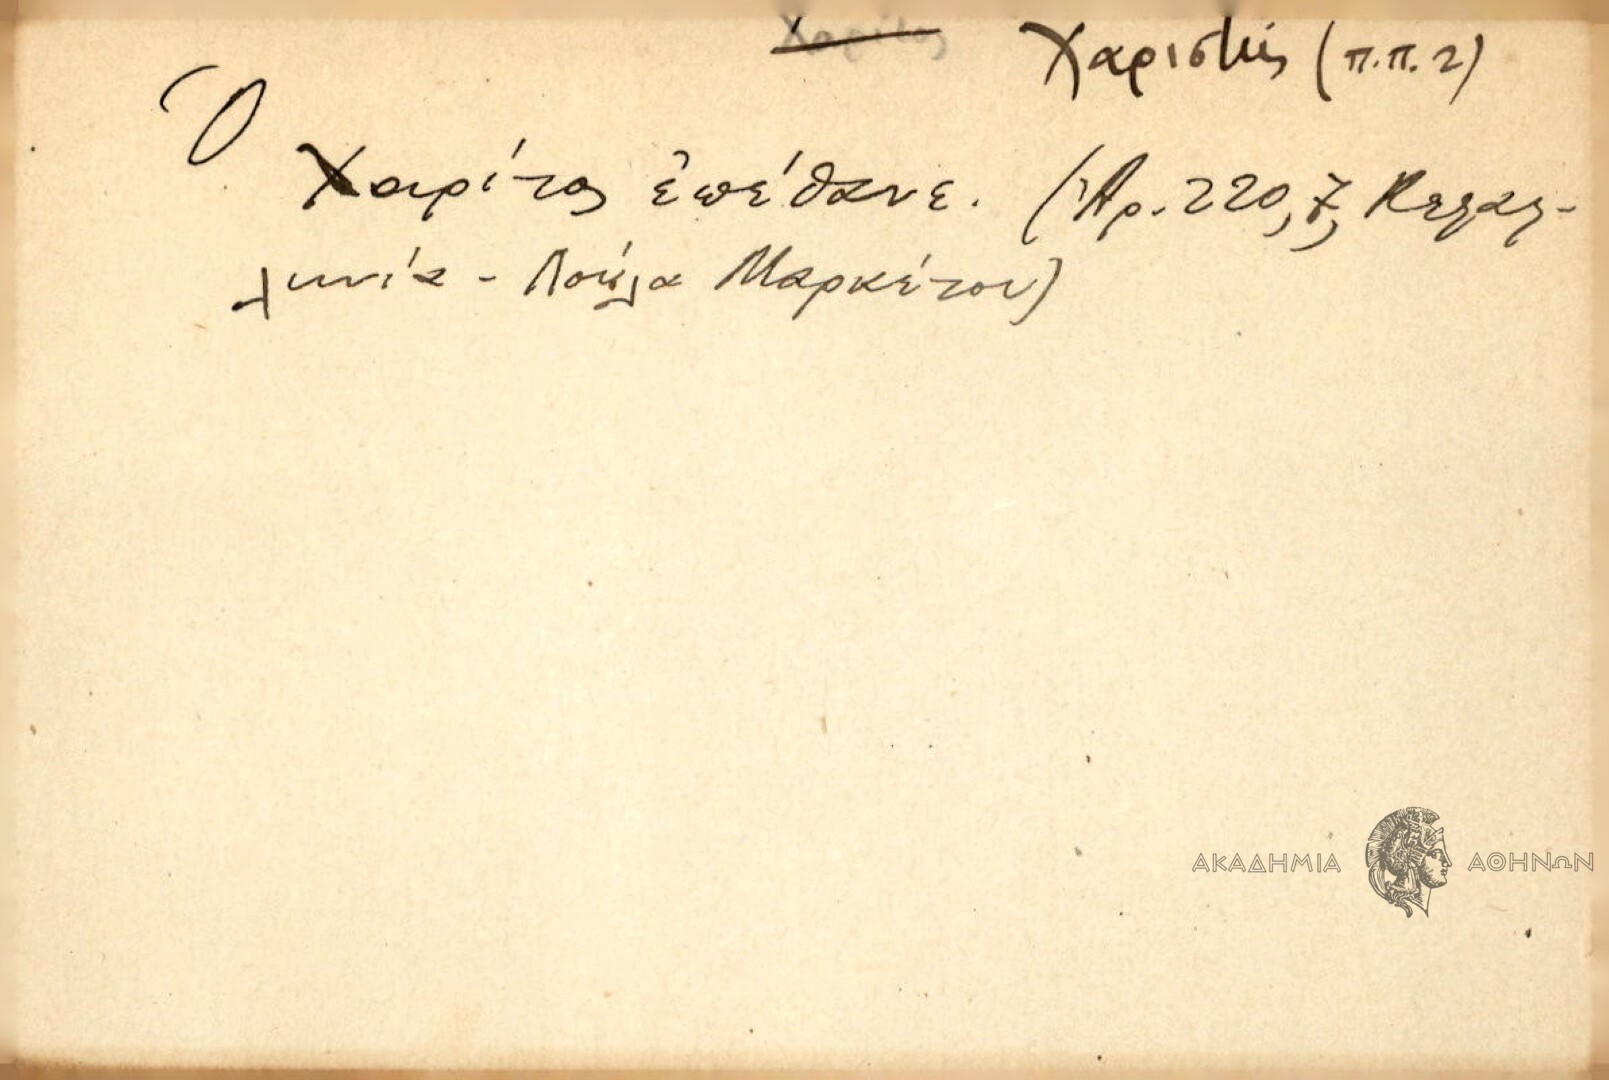 Χαρίτος Χαριστής (π.π. 2)
Ὁ
Χαρίτος ἐπέθανε. (Ἀρ. 220, 7, Κεφαλ-
ληνία - Λούλα Μαρκέτου)
ΑΚΑΔΗΜΙΑ ΑΘΗΝΩΝ